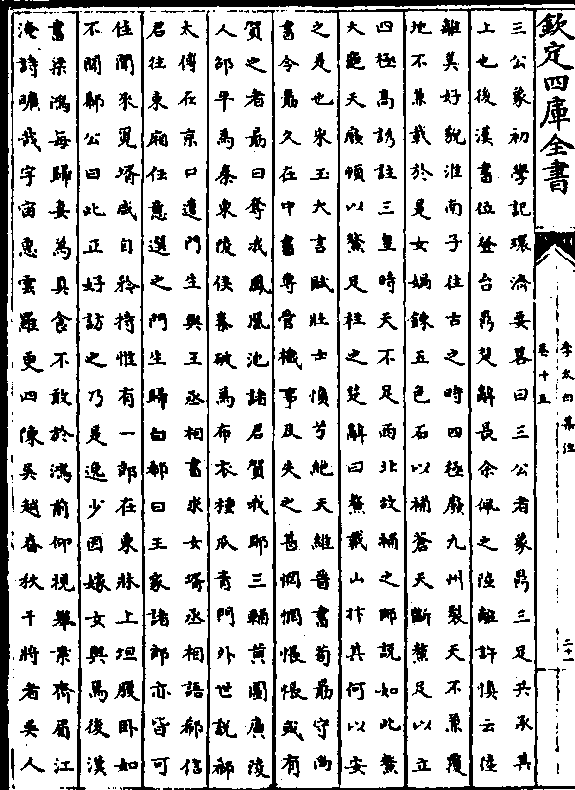 欽定四庫全書
李太白集注
卷十五
二十一
三公象初學記環濟要畧曰三公者象鼎三足共承其
上也後漢書位登台鼎楚辭長余佩之陸離許慎云陸
離美好貌淮南子往古之時四極廢九州裂天不兼覆
地不兼載於是女媧鍊五色石以補蒼天斷鰲足以立
四極高誘註三皇時天不足西北故補之師說如此鰲
大龜天廢頓以鰲足柱之楚辭曰鰲戴山抃其何以安
之是也宋玉大言賦壯士憤兮絶天維晉書荀勗守尚
書令勗久在中書專管機事及失之甚惘惘悵悵或有
賀之者勗曰奪我鳳凰池諸君賀我耶三輔黄圖廣陵
人邵平為秦東陵侯秦破為布衣種瓜青門外世說郗
太傅在京口遣門生與王丞相書求女壻丞相語郗信
君往東廂任意選之門生歸白郗曰王家諸郎亦皆可
佳聞來覓壻咸自矜持惟有一郎在東牀上坦腹卧如
不聞郗公曰此正好訪之乃是逸少因嫁女與焉後漢
書梁鴻每歸妻為具食不敢於鴻前仰視舉案齊眉江
淹詩曠哉宇宙惠雲羅更四陳吳越春秋干將者吳人